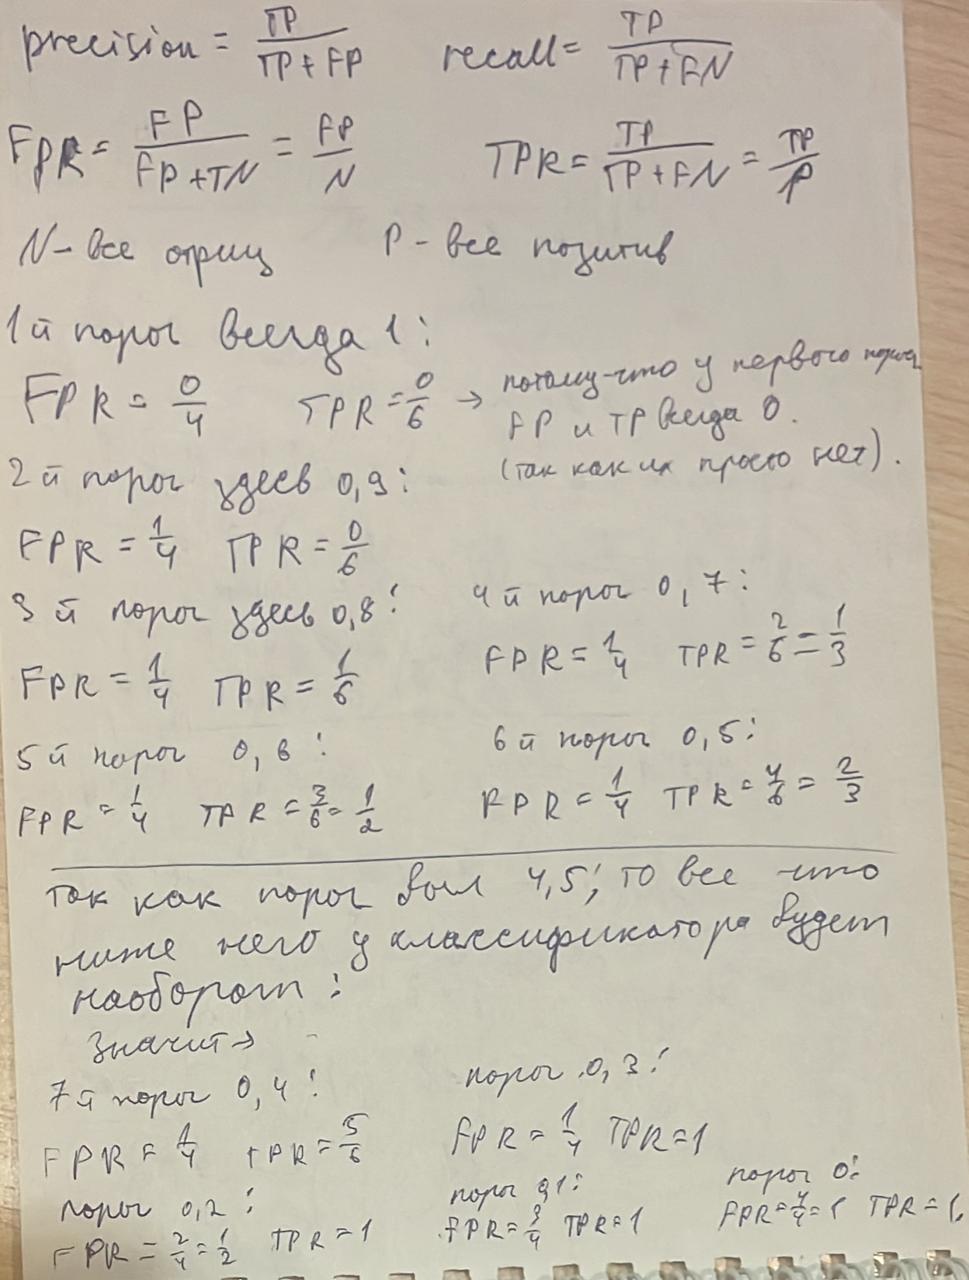 precision = TP / (TP + FP)   recall = TP / (TP + FN)
FPR = FP / (FP + TN) = FP / N   TPR = TP / (TP + FN) = TP / P
N - все отриц   P - все позитив
1й порог всегда 1:
FPR = 0/4   TPR = 0/6 → потому-что у первого порога
FP и TP всегда 0.
(так как их просто нет).
2й порог здесь 0,9:
FPR = 1/4   TPR = 0/6
3й порог здесь 0,8:   4й порог 0,7:
FPR = 1/4   TPR = 1/6   FPR = 1/4   TPR = 2/6 = 1/3
5й порог 0,6:   6й порог 0,5:
FPR = 1/4   TPR = 3/6 = 1/2   FPR = 1/4   TPR = 4/6 = 2/3
Так как порог был 4,5, то все что
ниже него у классификатора будет
наоборот:
Значит →
7й порог 0,4:   порог 0,3:
FPR = 1/4   TPR = 5/6   FPR = 1/4   TPR = 1
порог 0,2:   порог 0,1:   порог 0:
FPR = 2/4 = 1/2   TPR = 1   FPR = 3/4   TPR = 1   FPR = 4/4 = 1   TPR = 1.